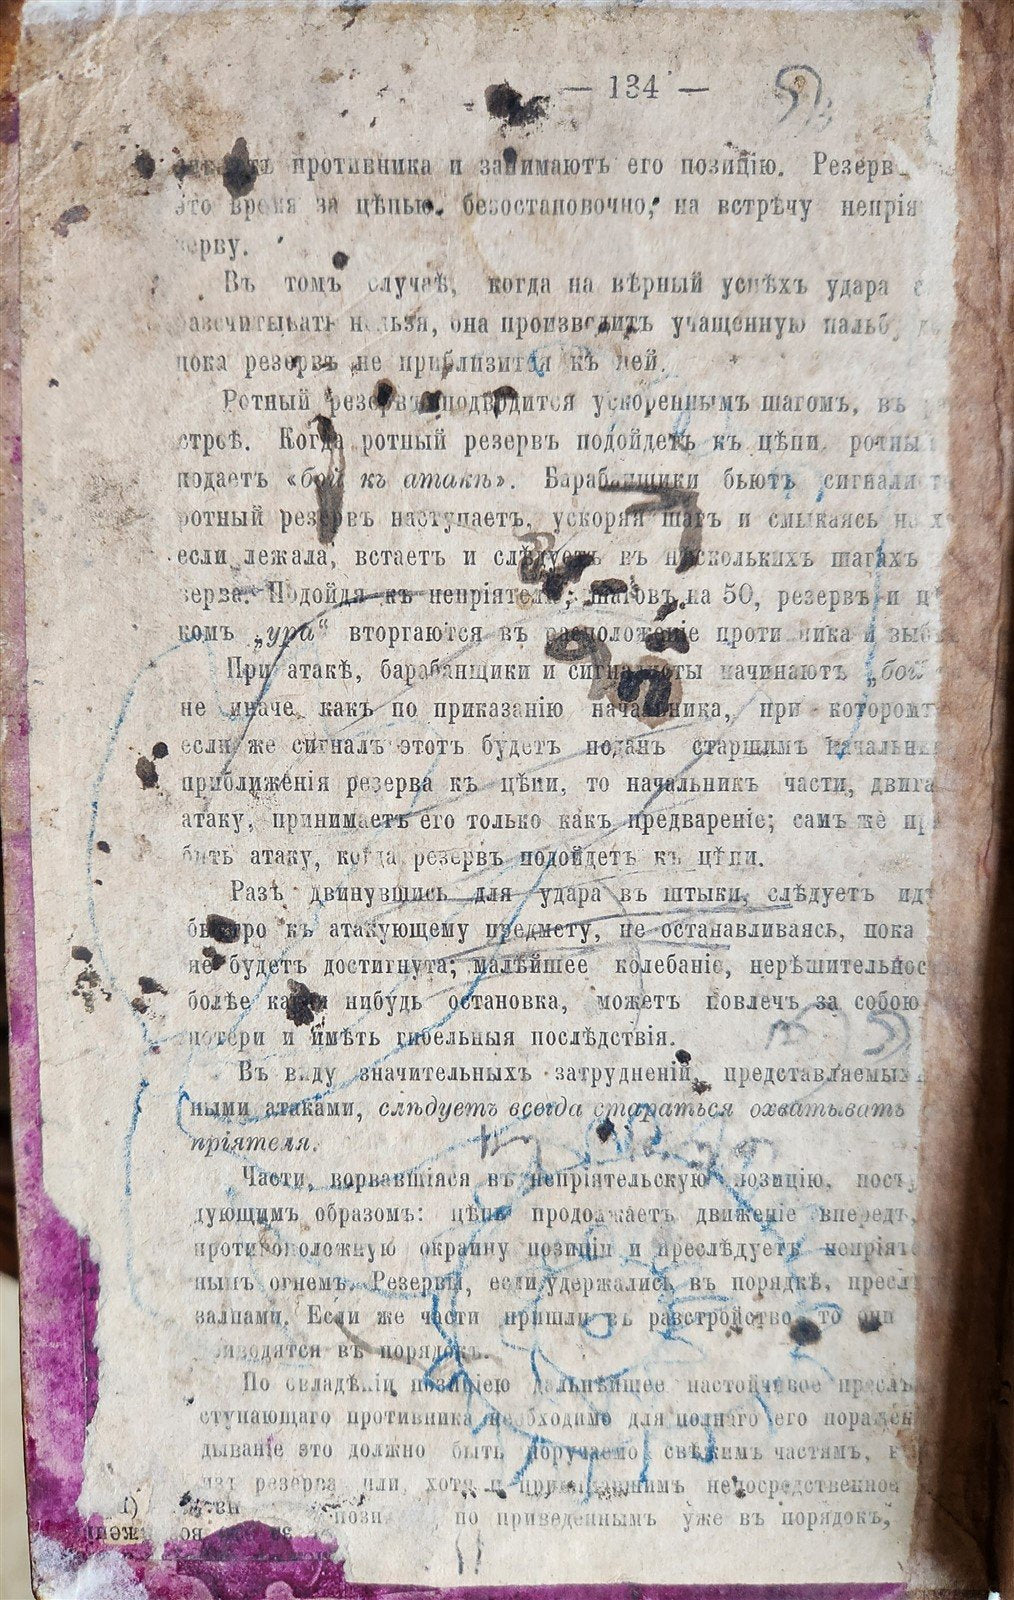 — 134 —
противника и занимаютъ его позицію. Резерв
это время за цѣпью, безостановочно, на встрѣчу непрія
зерву.
Въ томъ случаѣ, когда на вѣрный успѣхъ удара
разсчитывать нельзя, она производитъ учащенную пальбу
пока резервъ не приблизится къ ней.
Ротный резервъ подводится ускореннымъ шагомъ, въ
строѣ. Когда ротный резервъ подойдетъ къ цѣпи, ротны
подаетъ «бой къ атакѣ». Барабанщики бьютъ, сигналист
ротный резервъ наступаетъ, ускоряя шагъ и смыкаясь на х
если лежала, встаетъ и слѣдуетъ въ нѣсколькихъ шагахъ
зерва. Подойдя къ непріятелю, шаговъ на 50, резервъ и ц
комъ „ура“ вторгаются въ расположеніе противника и выб
При атакѣ, барабанщики и сигналисты начинаютъ „бой
не иначе какъ по приказанію начальника, при которомъ
если же сигналъ этотъ будетъ поданъ старшимъ начальни
приближенія резерва къ цѣпи, то начальникъ части, двига
атаку, принимаетъ его только какъ предвареніе; самъ же пр
бить атаку, когда резервъ подойдетъ къ цѣпи.
Разъ двинувшись для удара въ штыки, слѣдуетъ ид
быстро къ атакующему предмету, не останавливаясь, пока
не будетъ достигнута; малѣйшее колебаніе, нерѣшительнос
болѣе какая нибудь остановка, можетъ повлечь за собою
потери и имѣть гибельныя послѣдствія.
Въ виду значительныхъ затрудненій, представляемых
ными атаками, слѣдуетъ всегда стараться охватывать
пріятеля.
Части, ворвавшіяся въ непріятельскую позицію, посту
дующимъ образомъ: цѣпь продолжаетъ движеніе впередъ,
противоположную окраину позиціи и преслѣдуетъ непріят
нымъ огнемъ. Резервы, если удержались въ порядкѣ, пресл
залпами. Если же части пришли въ разстройство, то они
приводятся въ порядокъ.
По овладѣніи позиціею дальнѣйшее настойчивое пресл
ступающаго противника необходимо для полнаго его поражен
дываніе это должно быть поручаемо свѣжимъ частямъ,
изъ резерва или хотя и принимавшимъ непосредственное
пози по приведеннымъ уже въ порядокъ,